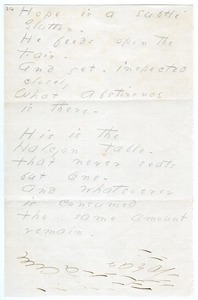 Hope is a subtle
Glutton.
He feeds upon the
Fair.
And yet. inspected
closely
What abstinence
is there.
His is the
Halcyon Table.
that never seats
but one.
And whatsoever
is consumed
the same amount
remain.